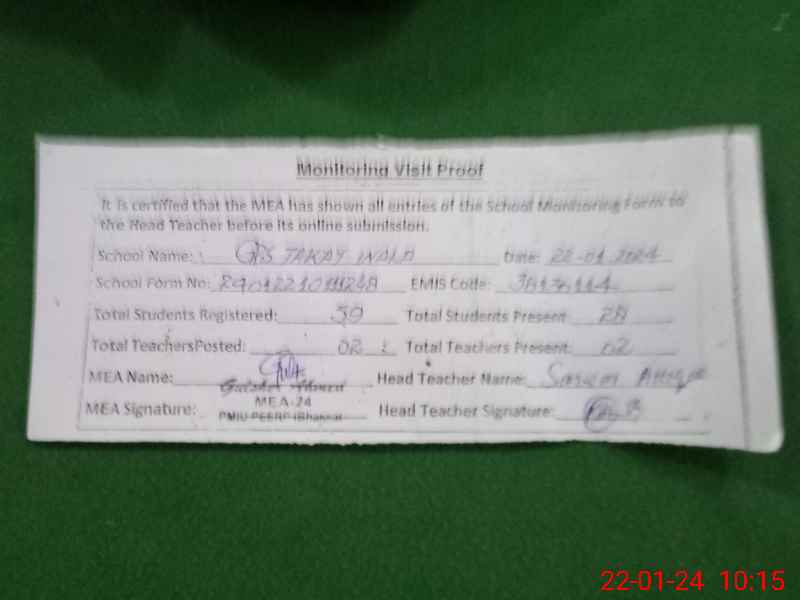 Monitoring Visit Proof
It is certified that the MEA has shown all entries of the School Monitoring Form to
the Head Teacher before its online submission.
School Name: GPS TAKAY WALA Date: 22-01-2024
School Form No: EMIS Code:
Total Students Registered: 50 Total Students Present: 28
Total TeachersPosted: 02 Total Teachers Present: 02
MEA Name: Ahmed Head Teacher Name:
MEA-24
MEA Signature: PMIU-PEERP (Bhakkar) Head Teacher Signature:
22-01-24 10:15